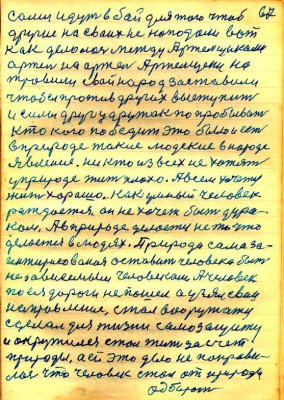 сами идут в бой для того чтоб 62
другие на своих не нападали вот
как делалося между Артельщиками
артел на артел Артельщики на
травили свой народ заставили
чтобы против других выступит
и силы друг у друга пробиват
кто кого победит это было и ест
в природе такие людские в народе
явление. никто из всех не хотят
у природе жит плохо. А всем хочется
жит харашо. Как умный человек
рождается он не хочет быт дура-
ком, А в природе делается не то что
делается в людях. Природа сама за-
интирисованоя оставит человека быт
независимым человеком. А человек
по ея дороги не пошел а узял свои
направление, стал вооружат
сделал для жизни самозащиту
и окружился стал жит за счет
природы, а ей это дело не понрави-
лас что человек стал от природы
отбират